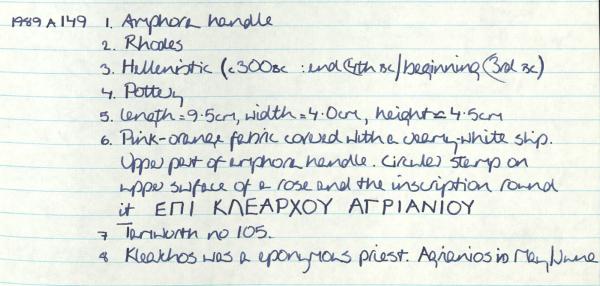 1989 A 149 1. Amphora handle
2. Rhodes
3. Hellenistic (c300BC : end 4th BC/beginning 3rd BC)
4. Pottery
5. length = 9.5cm, width = 4.0cm, height = 4.5cm
6. Pink-orange fabric covered with a creamy-white slip.
Upper part of amphora handle. Circular stamp on
upper surface of a rose and the inscription round
it ΕΠΙ ΚΛΕΑΡΧΟΥ ΑΓΡΙΑΝΙΟΥ
7 Tamworth no 105.
8 Kleakhos was a eponymous priest. Agrianios is May/June